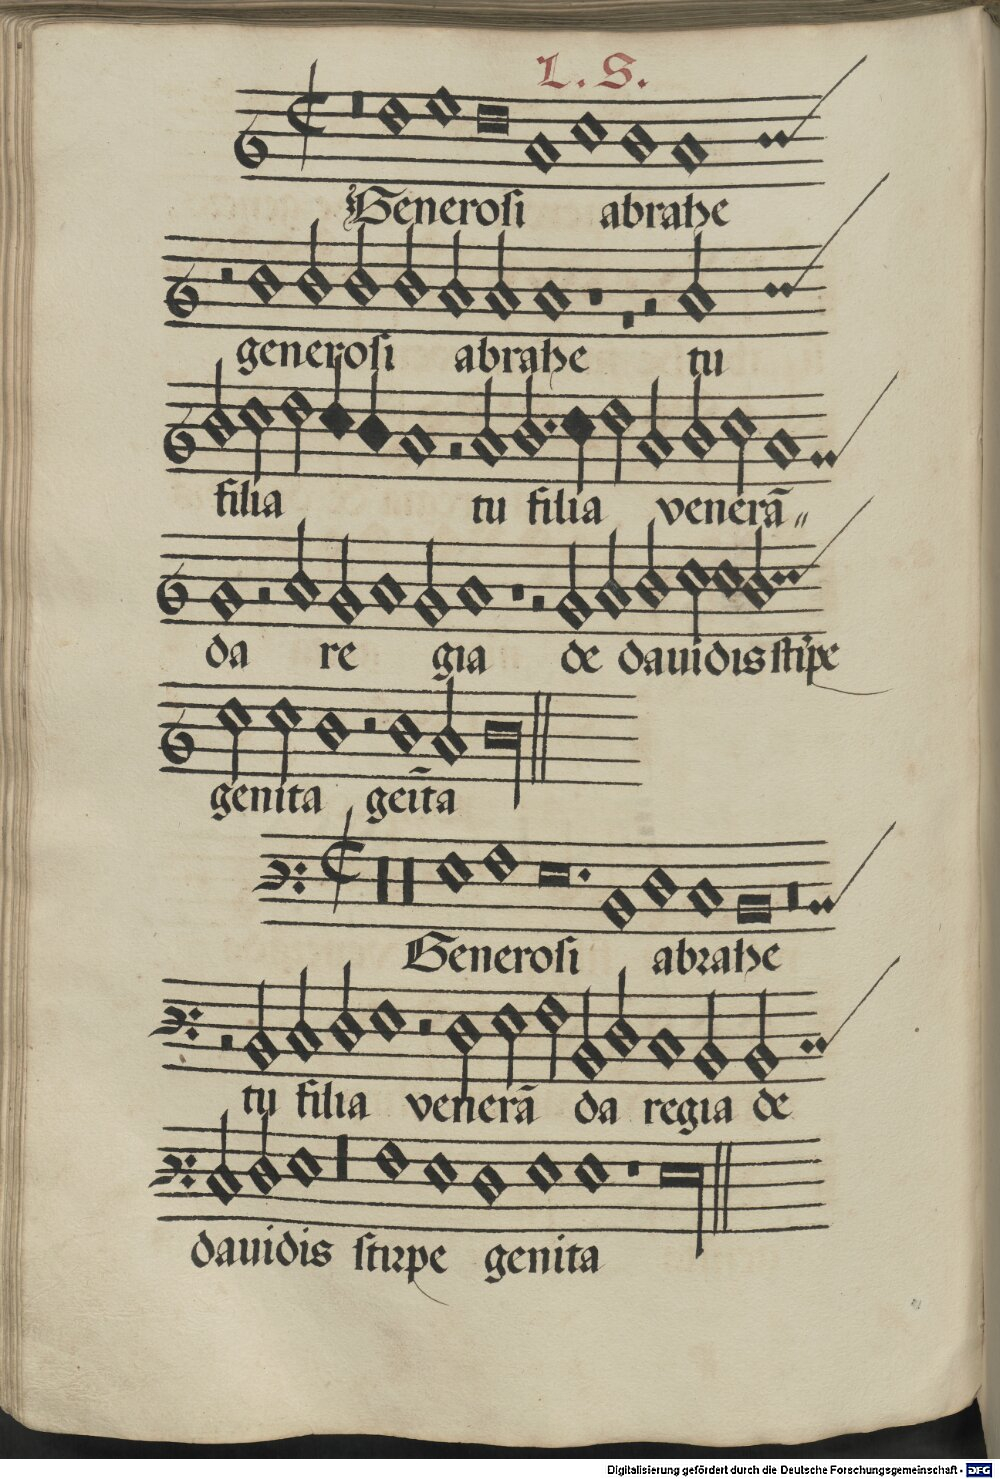 L. S.
Generosi abrahe
generosi abrahe tu
filia tu filia venerā
da re gia de dauidis stirpe
genita geīta
Generosi abrahe
tu filia venerā da regia de
dauidis stirpe genita
Digitalisierung gefördert durch die Deutsche Forschungsgemeinschaft - DFG